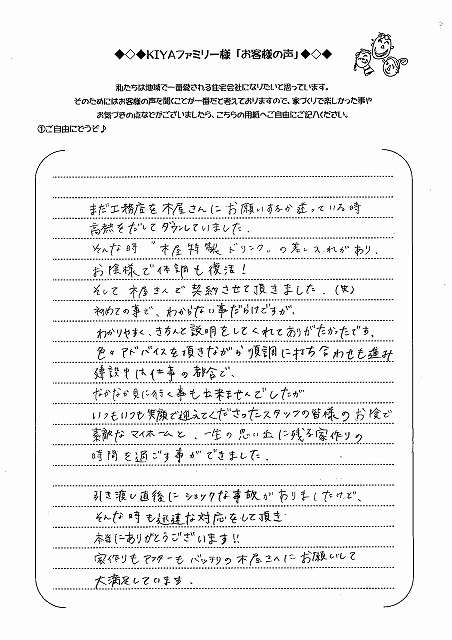 ◆◇◆KIYAファミリー様「お客様の声」◆◇◆
私たちは地域で一番愛される住宅会社になりたいと思っています。
そのためにはお客様の声を聞くことが一番だと考えておりますので、家づくりで楽しかった事や
お気づきの点などがございましたら、こちらの用紙へご自由にご記入ください。
①ご自由にどうぞ♪
まだ工務店を木屋さんにお願いするか迷っている時
高熱をだしてダウンしていました.
そんな時 〝木屋特製ドリンク〟の差し入れがあり.
お陰様で体調も復活!
そして木屋さんで契約させて頂きました.(笑)
初めての事で、わからない事だらけですが、
わかりやすく、きちんと説明をしてくれてありがたかったです.
色々アドバイスを頂きながら順調に打ち合わせも進み
建設中は仕事の都合で、
なかなか見に行く事も出来ませんでしたが
いつもいつも笑顔で迎えてくださったスタッフの皆様のお陰で
素敵なマイホームと、一生の思い出に残る家作りの
時間を過ごす事ができました.
引き渡し直後にショックな事故がありましたけど、
そんな時も迅速な対応をして頂き
本当にありがとうございます!!
家作りもアフターもバッチリの木屋さんにお願いして
大満足しています.